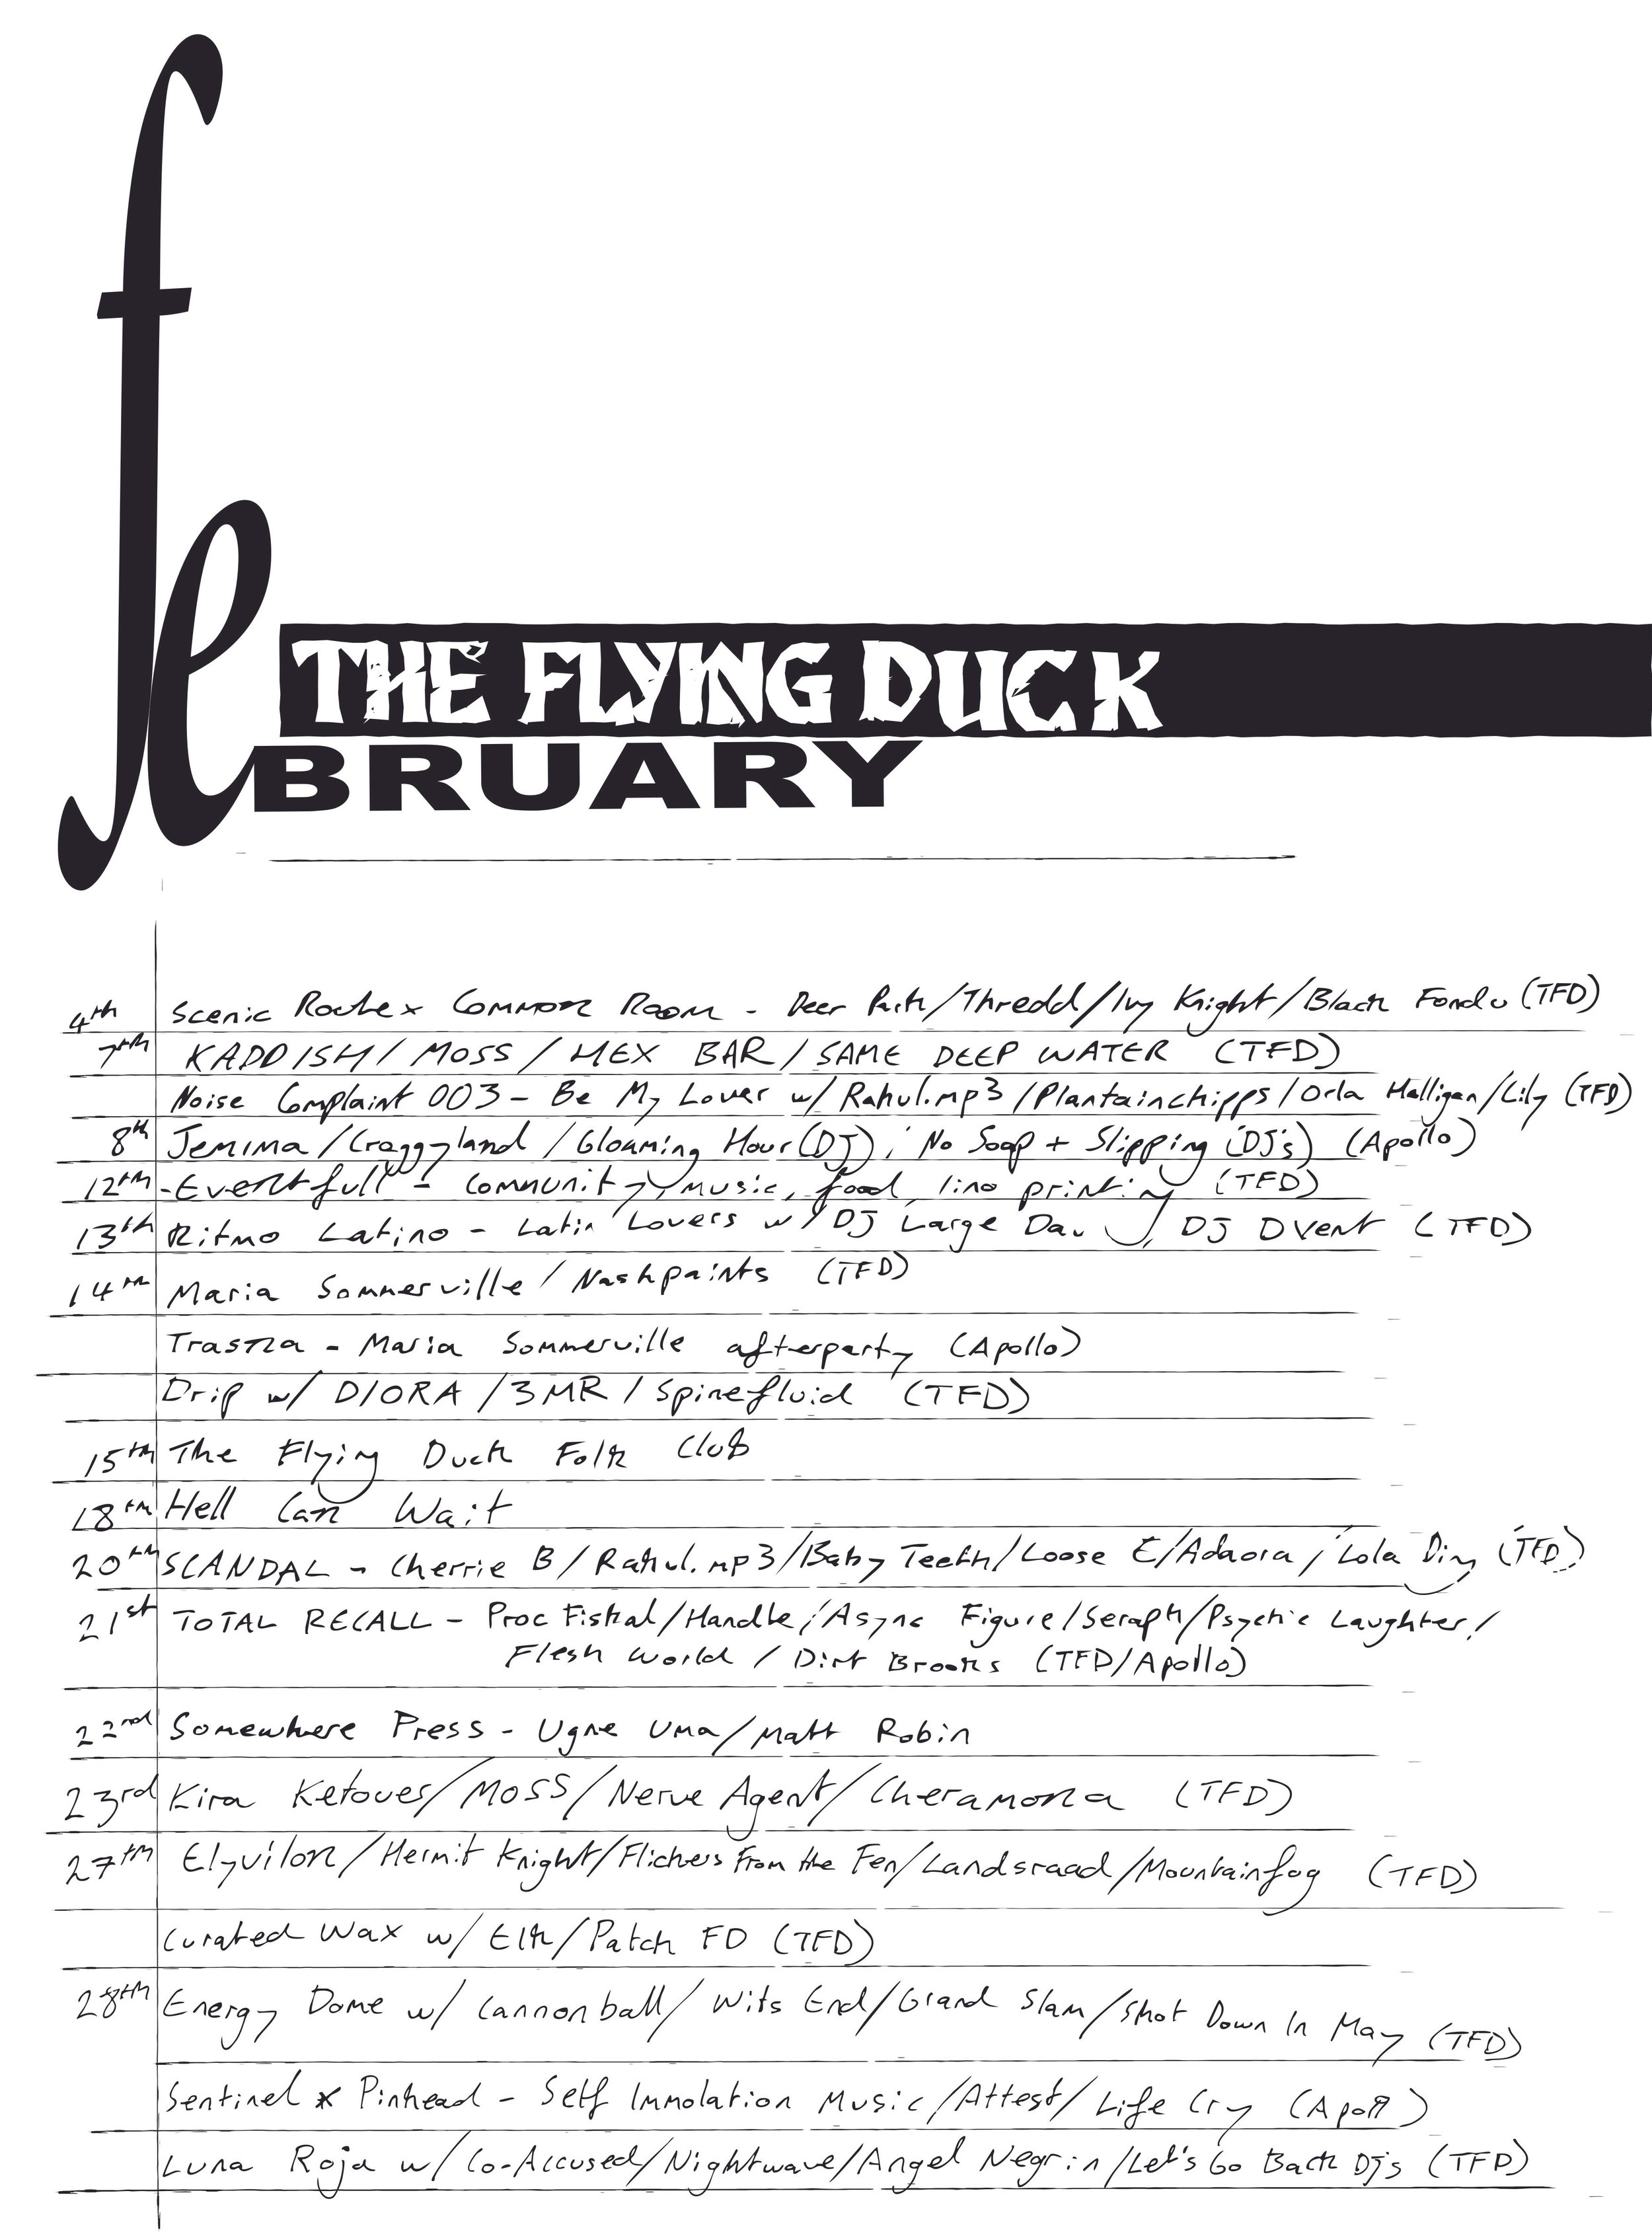 THE FLYING DUCK
feBRUARY
4th Scenic Route x Common Room - Deer Park/Thredd/Ivy Knight/Black Fondu (TFD)
7th KADDISH/MOSS/HEX BAR/SAME DEEP WATER (TFD)
Noise Complaint 003 - Be My Lover w/ Rahul.mp3/Plantainchipps/Orla Halligan/Lily (TFD)
8th Jemima/Craggyland/Gloaming Hour (DJ)/No Soap + Slipping (DJs) (Apollo)
12th - Eventfull - community, music, food, lino printing (TFD)
13th Ritmo Latino - Latin Lovers w/ DJ Large , DJ DVent (TFD)
14th Maria Sommerville/Nashpaints (TFD)
Trasna - Maria Sommerville afterparty (Apollo)
Drip w/ DIORA/3MR/Spinefluid (TFD)
15th The Flying Duck Folk Club
18th Hell Can Wait
20th SCANDAL - Cherrie B/Rahul.mp3/Baby Teeth/Loose E/Adaora/Lola (TFD)
21st TOTAL RECALL - Proc Fiskal/Handle/Async Figure/Seraph/Psychic Laughter/
Flesh World/Dirt Brooks (TFD/Apollo)
22nd Somewhere Press - Ugne Uma/Matt Robin
23rd Kira Ketoues/MOSS/Nerve Agent/Cheramona (TFD)
27th Elyvilon/Hermit Knight/Flickers From the Fen/Landsraad/Mountainfog (TFD)
Curated Wax w/ Elk/Patch FD (TFD)
28th Energy Dome w/ Cannonball/Wits End/Grand Slam/Shot Down In May (TFD)
Sentinel x Pinhead - Self Immolation Music/Attest/Life Cry
Luna Roja w/ Co-Accused/Nightwave/Angel Negrin/Let's Go Back Djs (TFD)